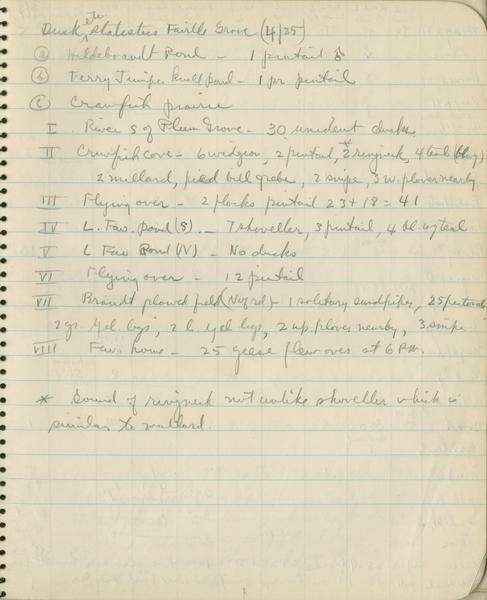 Duck, etc, statistics Faville Grove (4/25)
(a) Hildebrandt Pond - 1 pintail ♂
(b) Terry Juniper knoll pond - 1 pr pintail
(c) Crawfish prairie
I River S of Plum Grove - 30 unident ducks
II Crawfish cove - 6 widgeon, 2 pintail, *2 ringneck, 4 teal (blwg)
2 mallard, pied bill grebe, 2 snipe, 3 u. plover nearby.
III Flying over - 2 flocks pintail 23 + 18 = 41
IV L. Fav. pond (S). - 7 shoveller, 3 pintail, 4 bl. wg teal
V L Fav Pond (N) - No ducks
VI Flying over - 12 pintail
VII Brandt plowed field - 1 solitary sandpiper, 25 pectorals
2 gr. yel. legs, 2 l. yel legs, 2 up. plover nearby, 3 snipe
VIII Fav. home - 25 geese flew over at 6 PM.
* Sound of ringneck not unlike shoveller which is
similar to mallard.